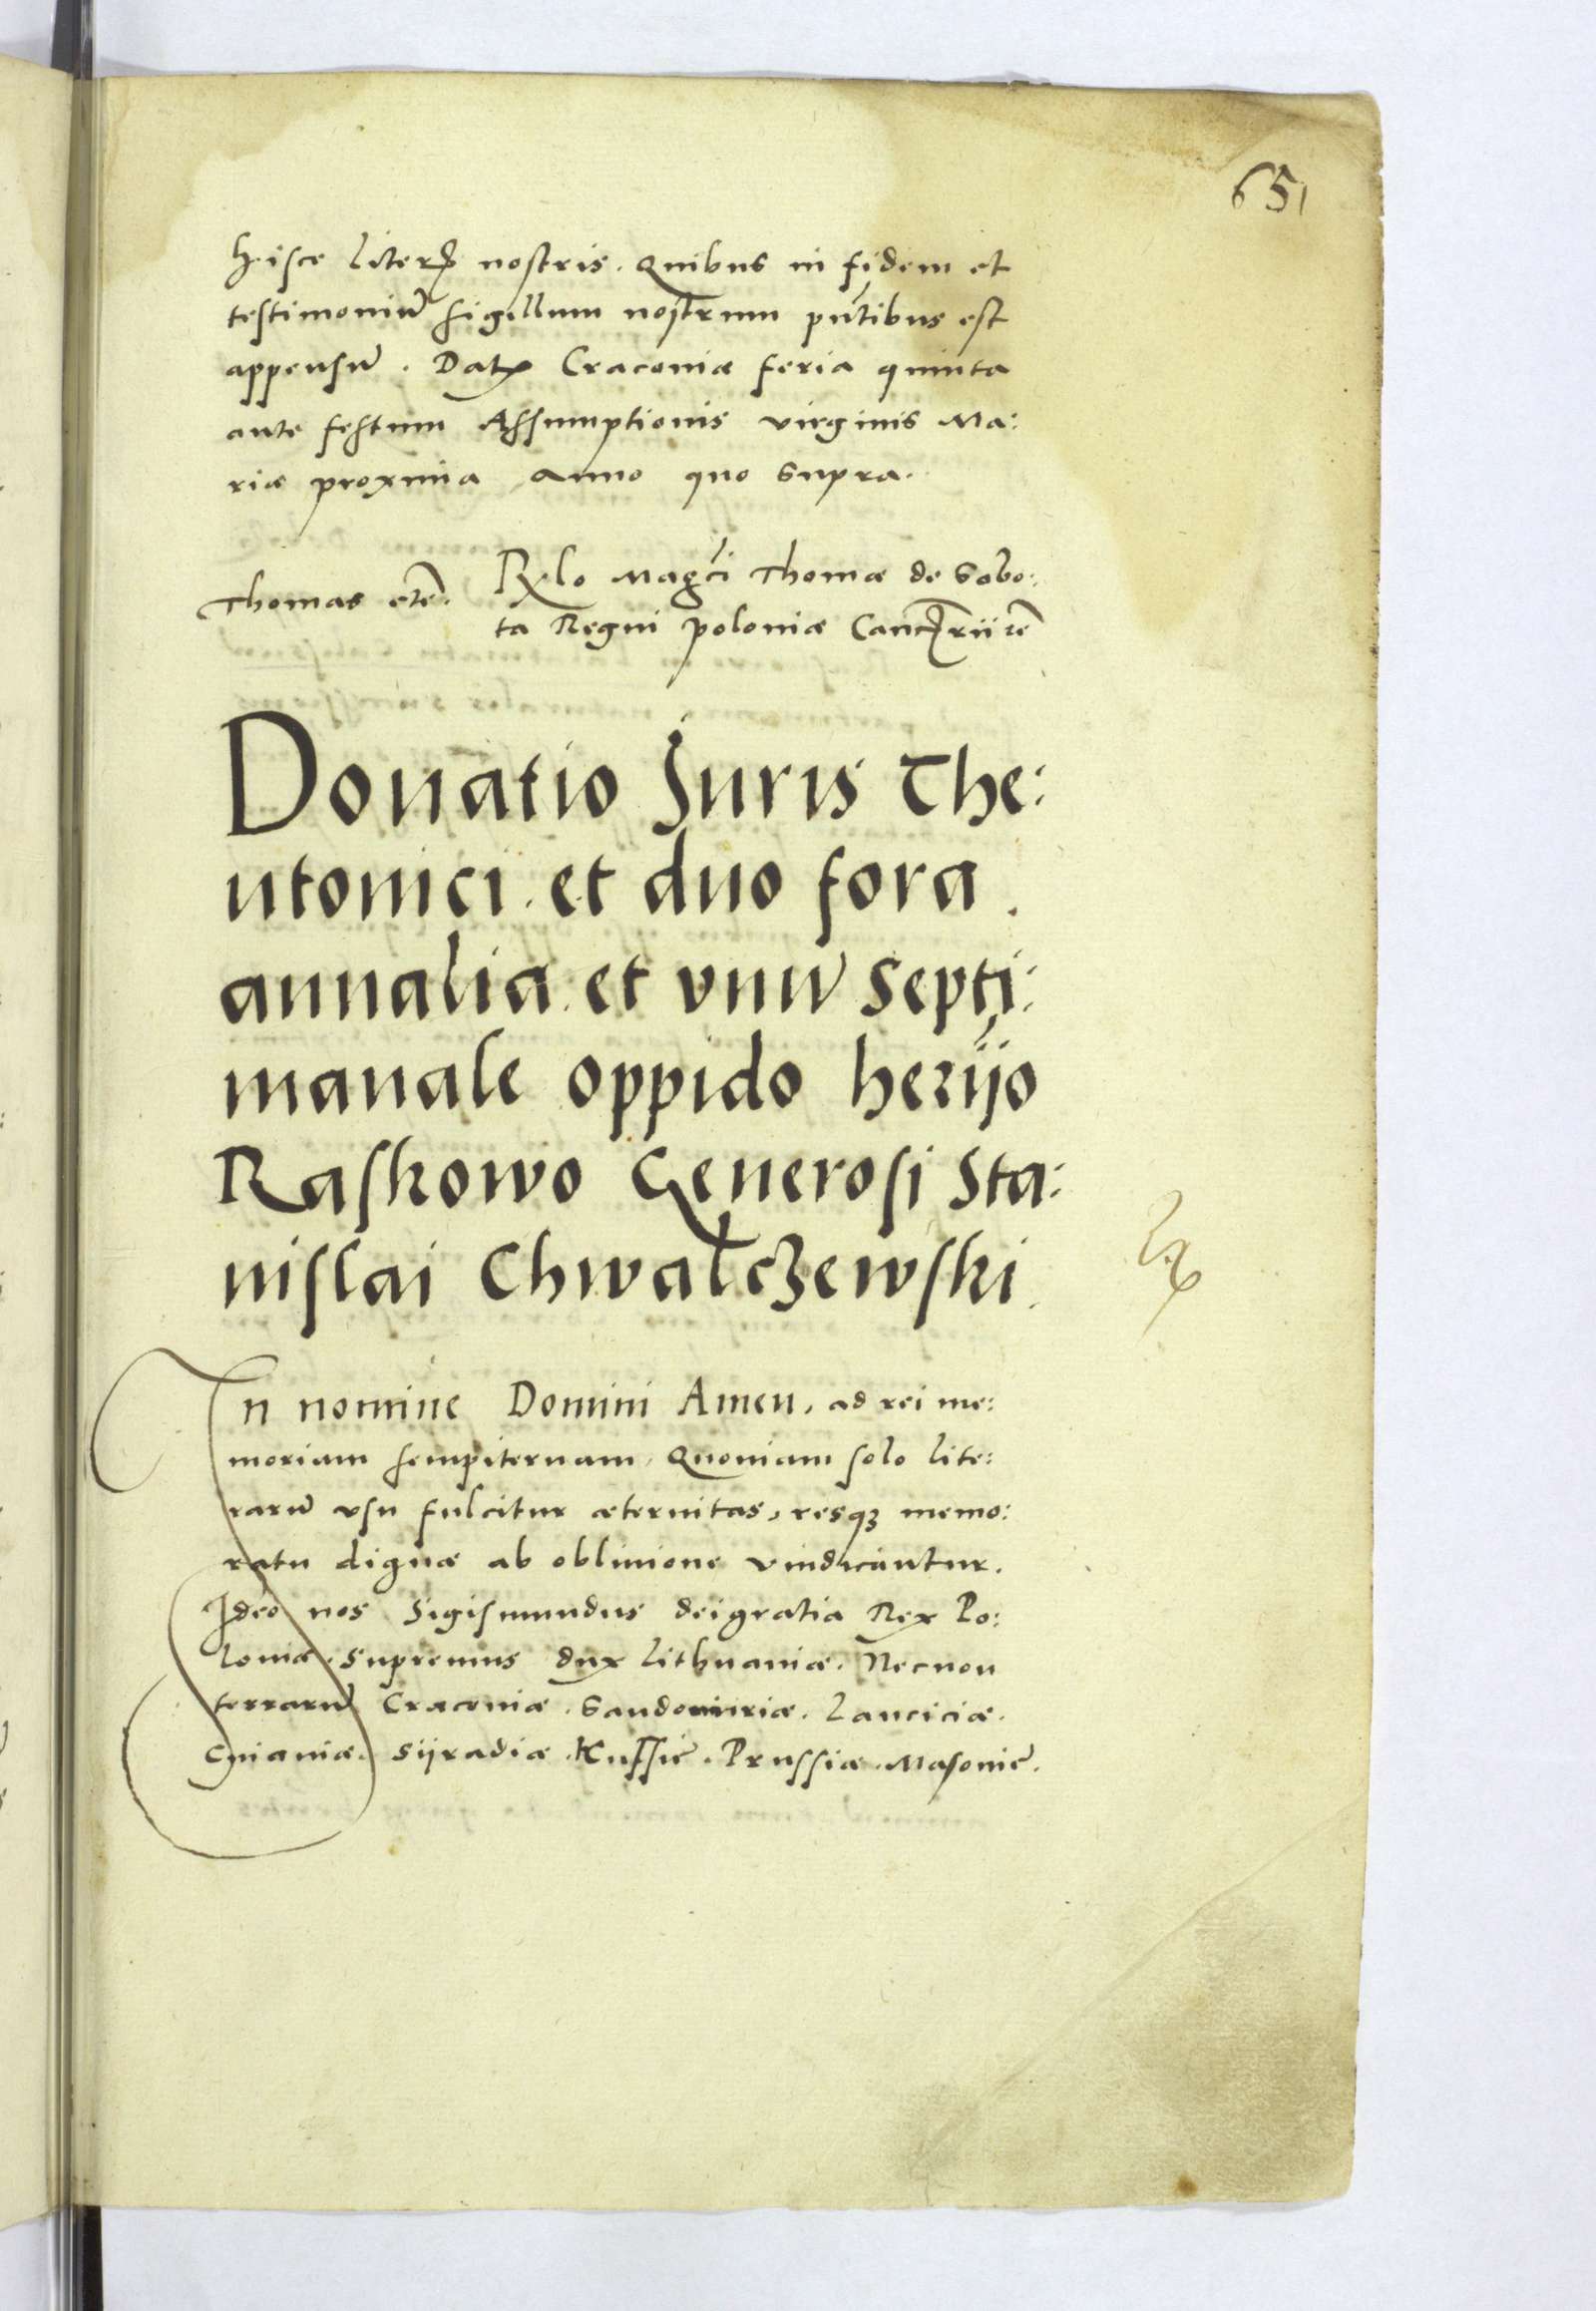 651
hisce literꝭ nostris. Quibus in fidem et
testimoniu͂ sigillum nostrum pn̄tibus est
appensu͂. Datꝭ Cracoviæ feria quinta
ante festum Assumptionis virginis Ma:
riæ proxima Anno quo supra.
Thomas etc̃. Rlo Mag͞ci Thomæ de Sobo:
ta Regni poloniæ Cancꝉrii
Donatio Juris The:
utonici. et duo fora
annalia. et vnu͂ Septi:
manale oppido herijo
Raskowo Generosi Sta:
nislai Chwalczewski
In nomine Domini Amen, ad rei me:
moriam sempiternam, Quoniam solo lite:
raru͂ vsu fulcitur æternitas, resqꝫ memo:
ratu dignæ ab oblivione vindicantur.
Ideo nos Sigismundus dei gratia Rex Po:
loniæ. Supremus dux Lithuaniæ. Necnon
terraru͂ Cracoviæ. Sandomiriæ. Lanciciæ.
Cuiaviæ. Sijradiæ. Russie. Prussiæ. Masovie.